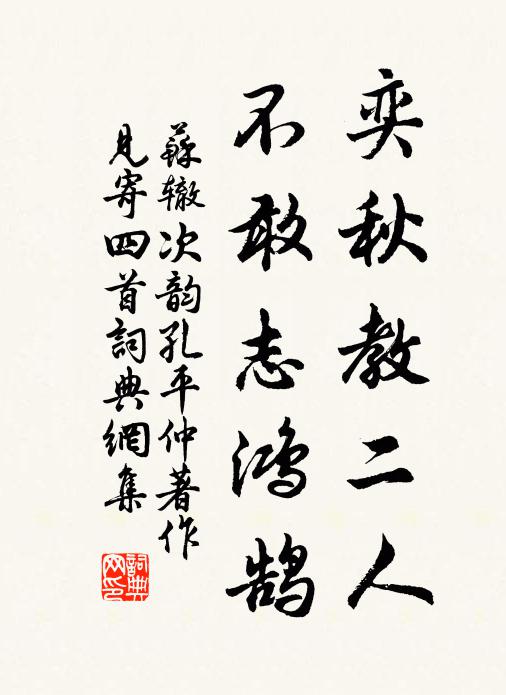 奕秋教二人
不敢志鴻鵠
蘇辙次韵孔平仲著作
見寄四首詞典網集
詞典
网印